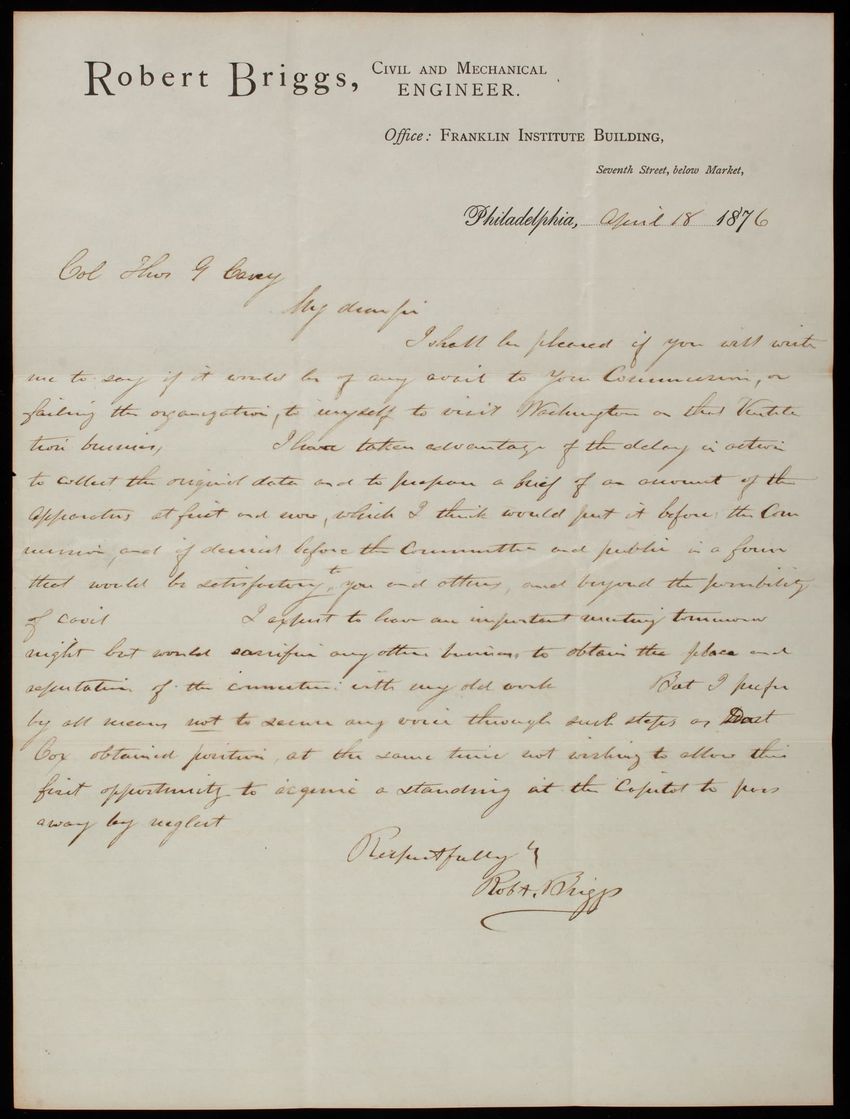 Robert Briggs, CIVIL AND MECHANICAL
ENGINEER.
Office: FRANKLIN INSTITUTE BUILDING,
Seventh Street, below Market,
Philadelphia, April 18 1876
Col Thos
My dear sir
I shall be pleased if you will write
me to say if it would be of any avail to your Commission, or
failing the organization, to myself to visit Washington on that Ventila
tion business, I have taken advantage of the delay in action
to collect the original data and to prepare a brief of an account of the
apparatus at first and now, which I think would put it before the Com
mission, and if desired before the Committee and public in a form
that would be satisfactory to you and others, and beyond the possibility
of cavil I expect to have an important meeting tomorrow
night but would sacrifice any other business to obtain the place and
reputation of the connection with my old work But I prefer
by all means not to secure any voice through such steps as
Cox obtained position, at the same time not wishing to allow this
first opportunity to acquire a standing at the Capitol to pass
away by neglect
Respectfully
Robt. Briggs